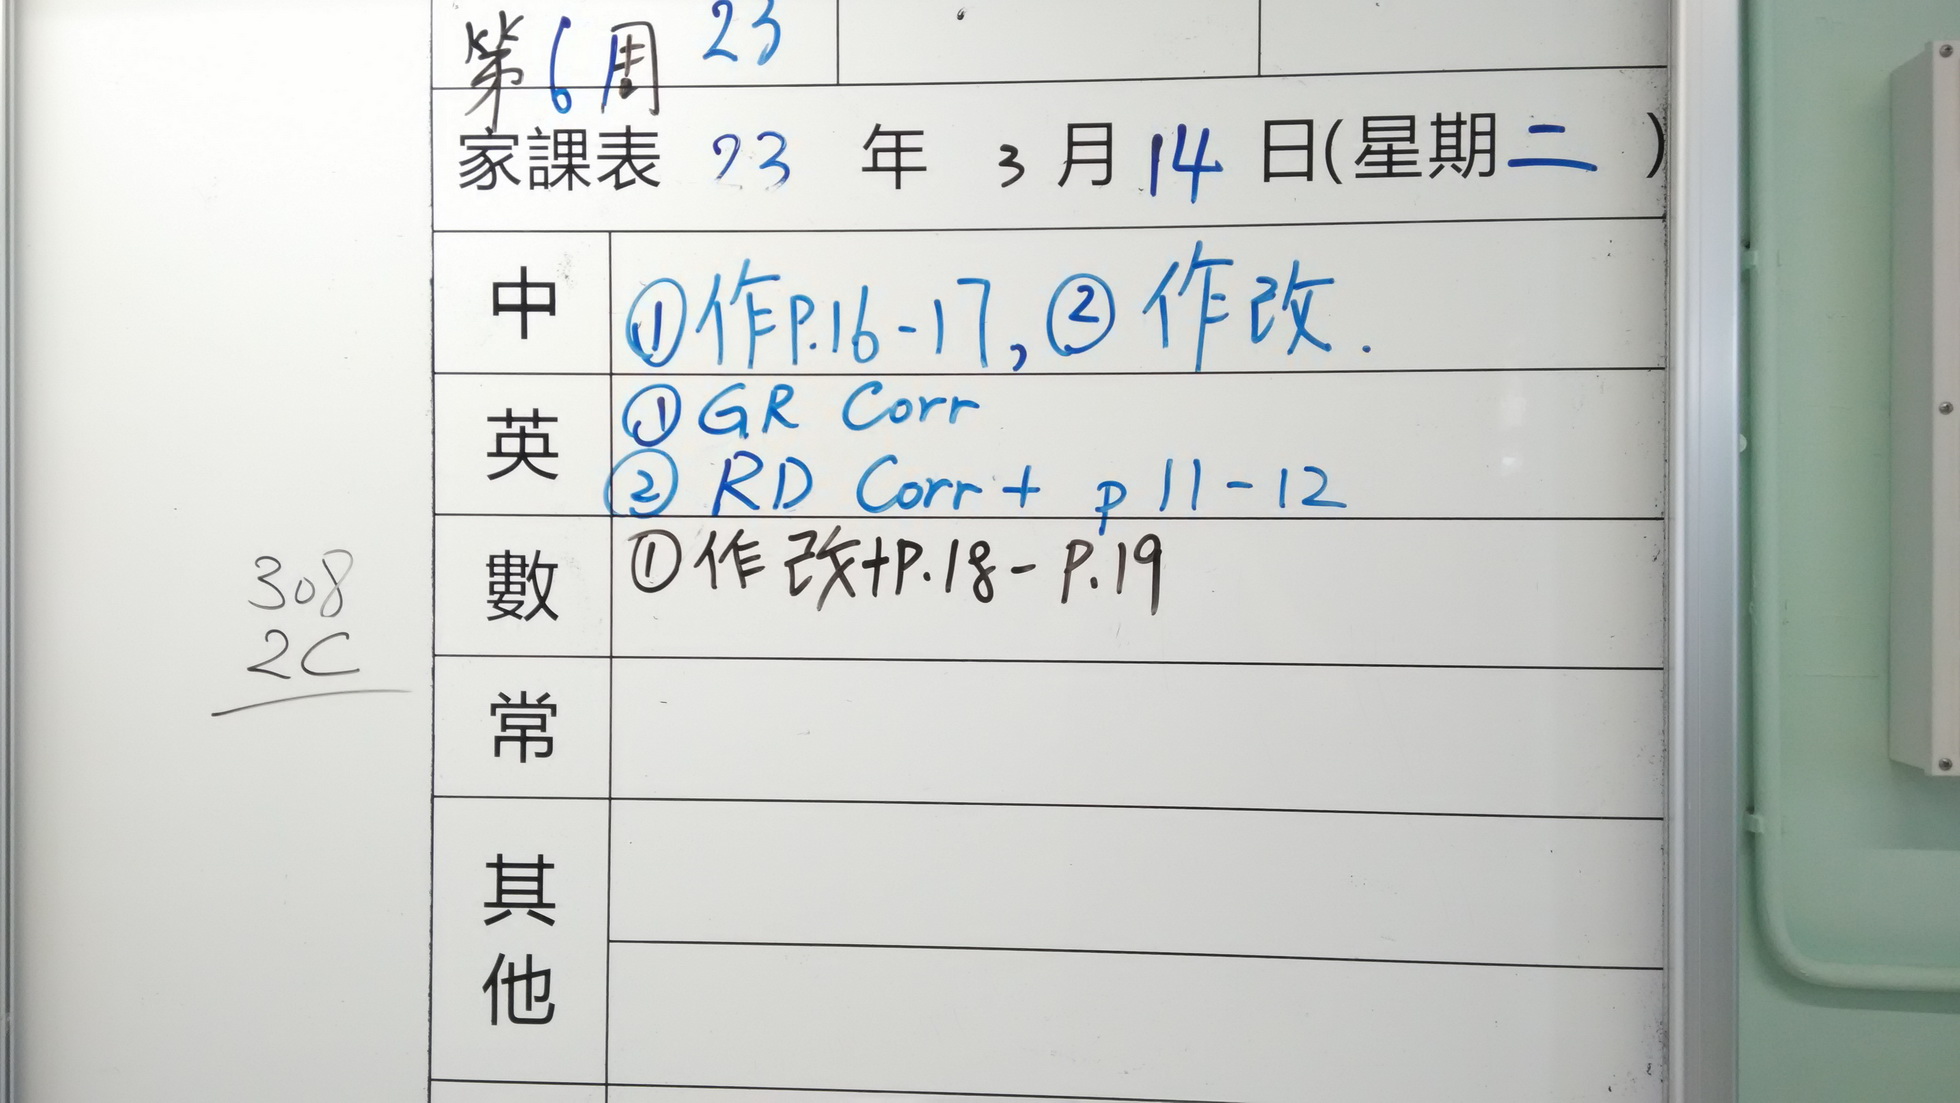 第6周 23
家課表 23 年 3 月 14 日(星期二 )
中 ①作P.16-17, ② 作改.
英 ① GR Corr
② RD Corr + p 11-12
數 ①作改+P.18- P.19
308
2C
常
其
他